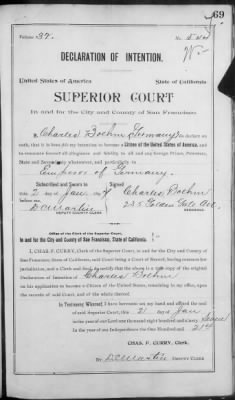 69
Volume 37.
DECLARATION OF INTENTION.
United States of America
State of California
SUPERIOR COURT
In and for the City and County of San Francisco.
I, Charles Boehm Germany do declare on
oath, that it is bona fide my intention to become a Citizen of the United States of America, and
to renounce forever all allegiance and fidelity to all and any foreign Prince, Potentate,
State and Sovereignty whatsoever, and particularly to
Emperor of Germany
Subscribed and Sworn to
this 2 day of Jan
before me,
Signed
Charles Boehm
D C Martin
DEPUTY COUNTY CLERK
235 Golden Gate Ave
RESIDENCE
Office of the Clerk of the Superior Court,
In and for the City and County of San Francisco, State of California.
I, CHAS. F. CURRY, Clerk of the Superior Court, in and for the City and County of San
Francisco, State of California, said Court being a Court of Record, having common law
jurisdiction, and a Clerk and Seal, do certify that the above is a true copy of the original
Declaration of Intention of Charles Boehm
on his application to become a Citizen of the United States, remaining in my office, upon
the records of said Court, and of the whole thereof.
In Testimony Whereof, I have hereunto set my hand and affixed the seal
of said Superior Court, this 2 day of Jan
in the year of our Lord one thousand eight hundred and ninety seven
in the year of our Independence the One Hundred and 21st
CHAS. F. CURRY, CLERK.
By D C Martin DEPUTY CLERK